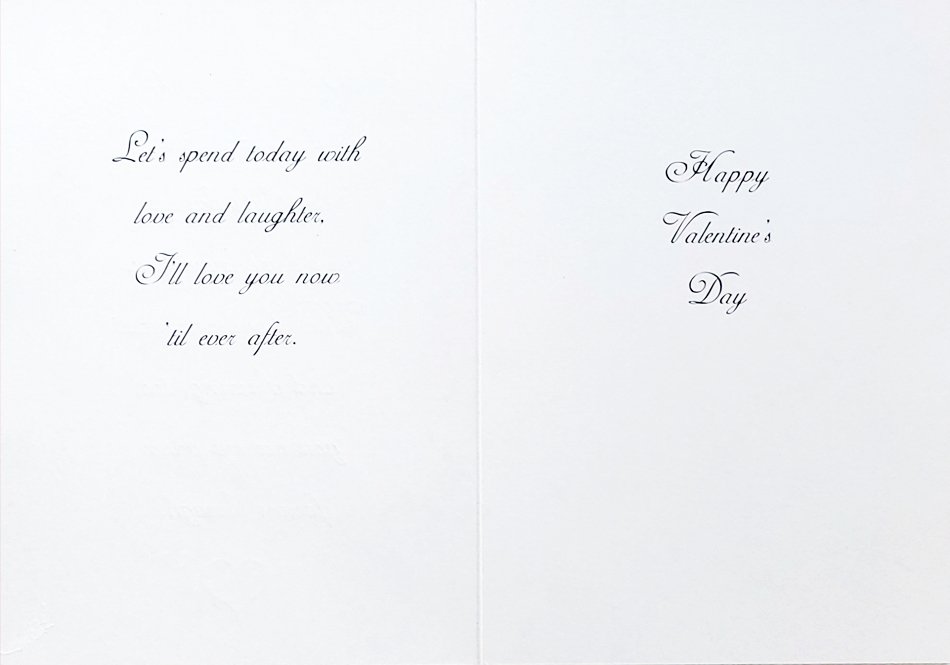 Let's spend today with
love and laughter,
I'll love you now
'til ever after.
Happy
Valentine's
Day